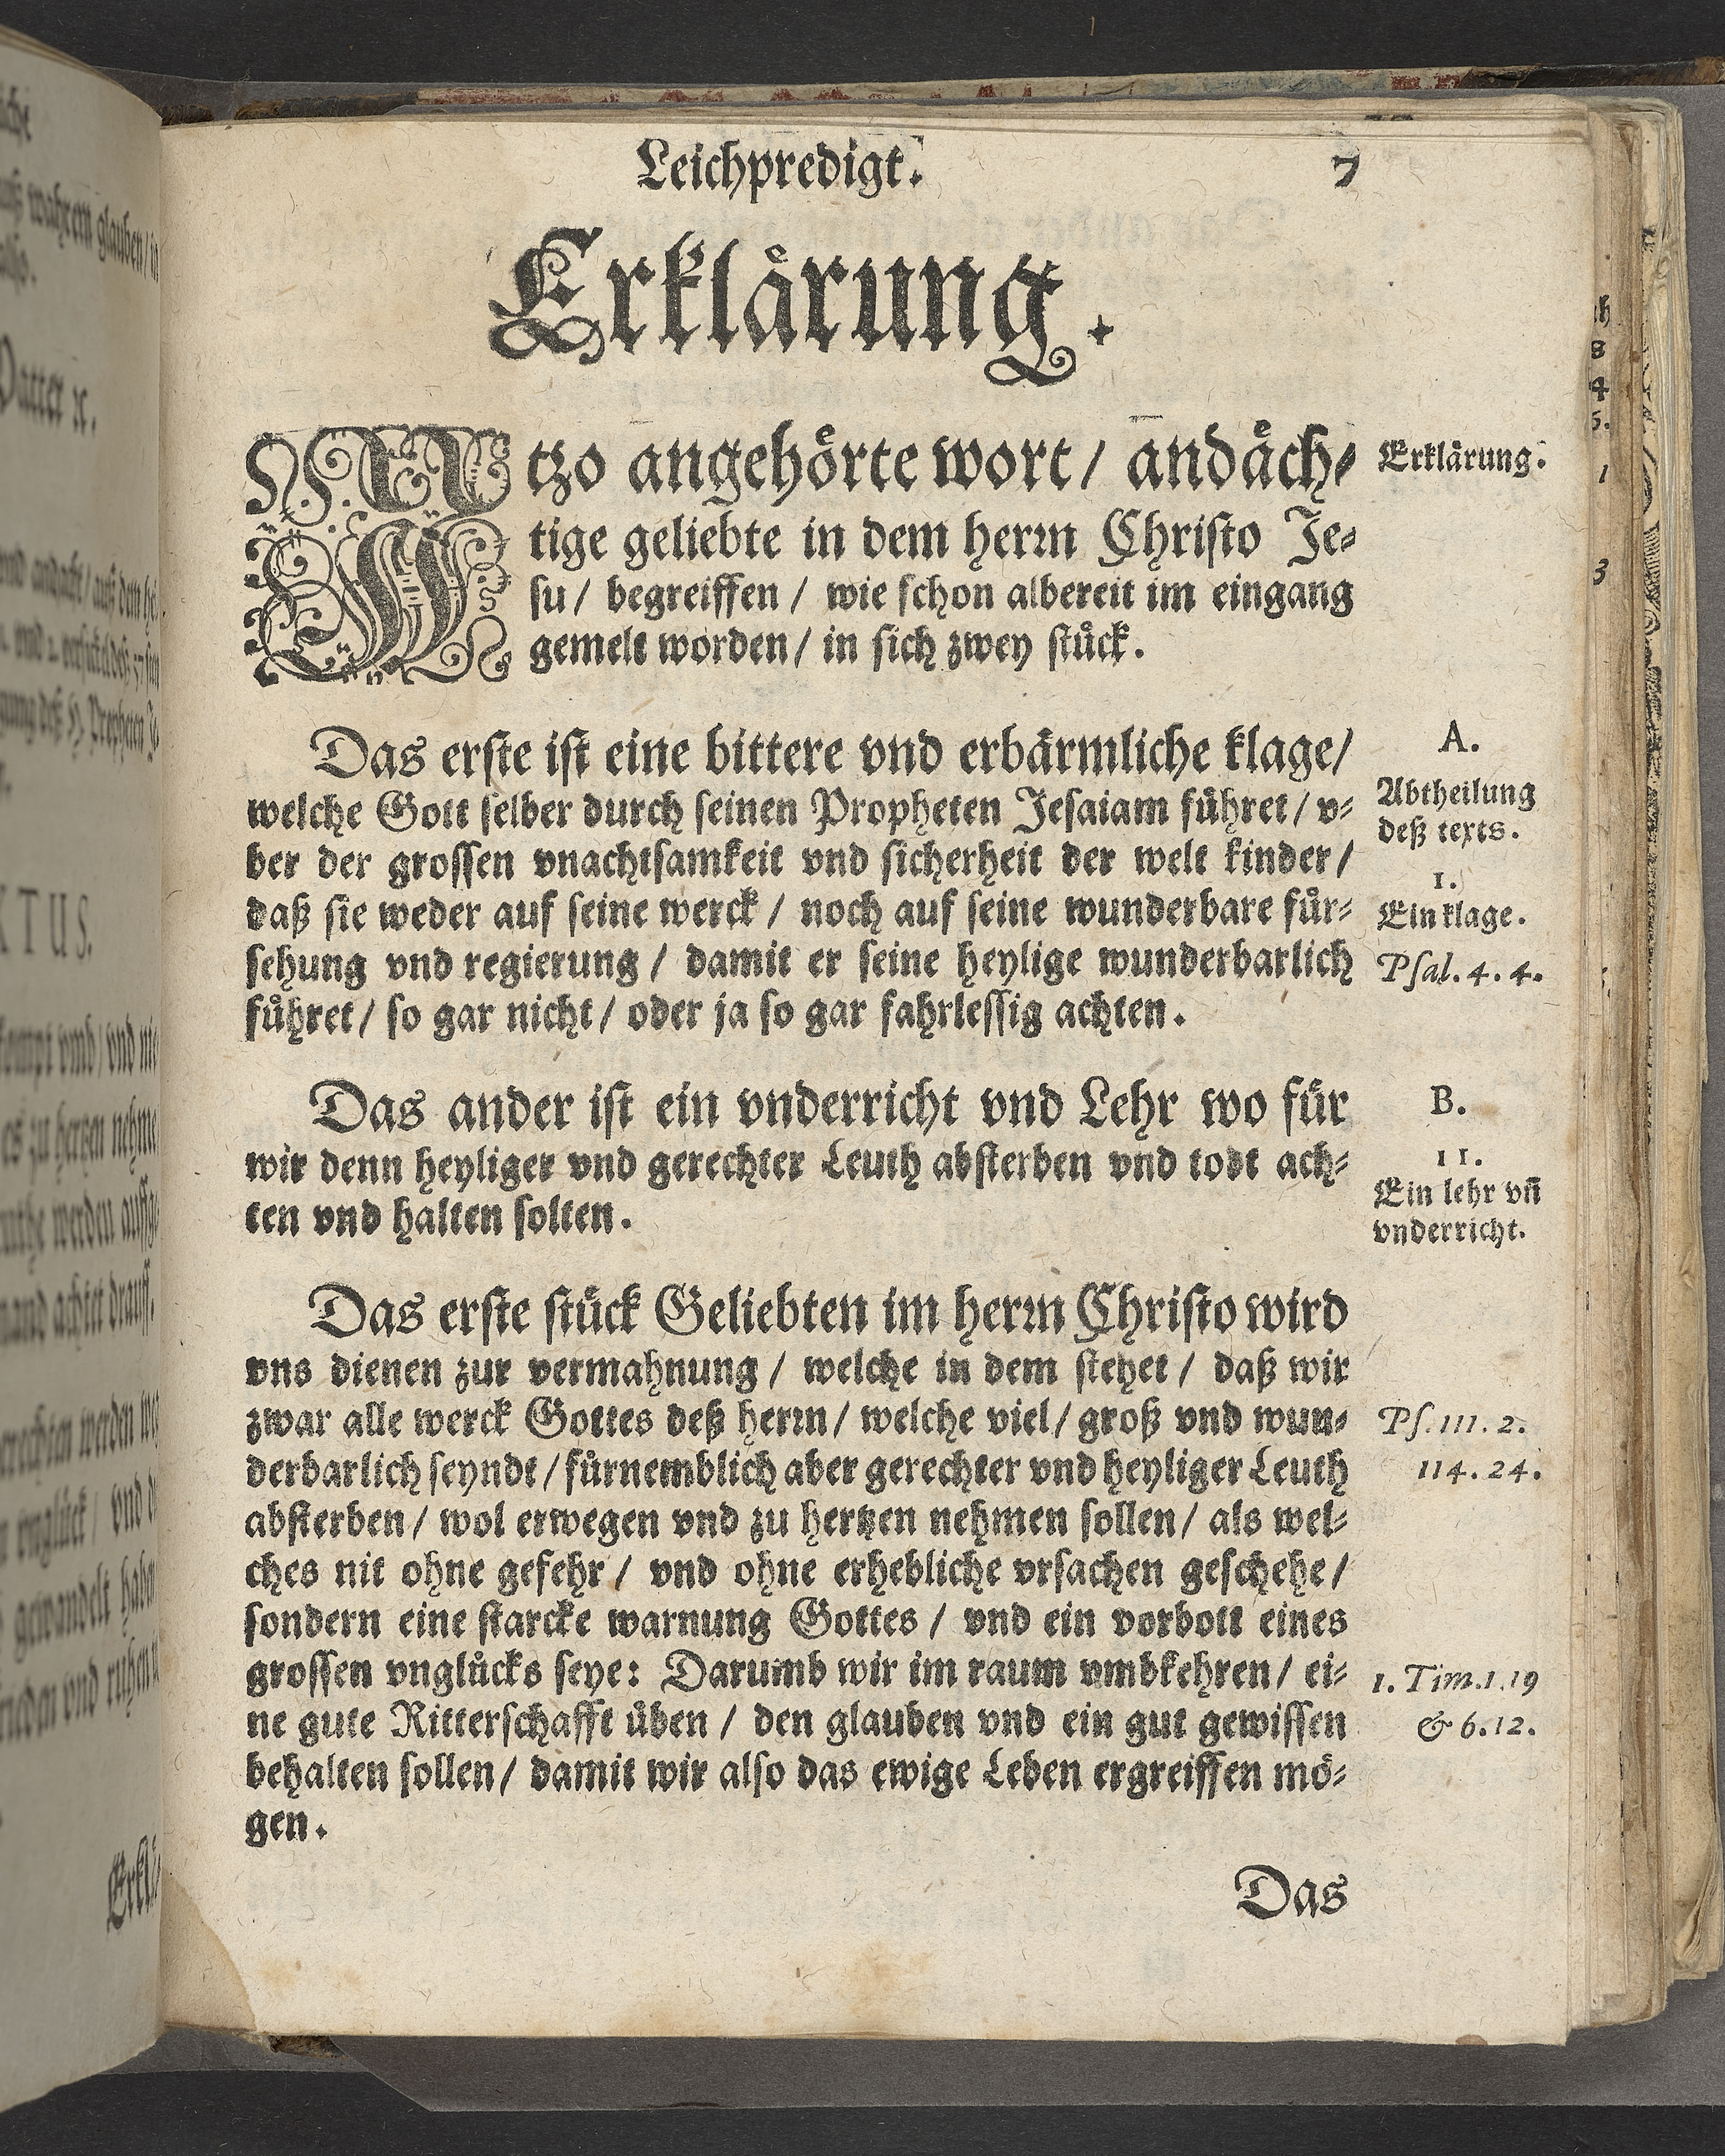 Leichpredigt. 7
Erklaͤrung.
tzo angehoͤrte wort / andaͤch⸗
tige geliebte in dem herꝛn Christo Je⸗
su / begreiffen / wie schon albereit im eingang
gemelt worden / in sich zwey stuͤck.
Erklaͤrung.
Das erste ist eine bittere vnd erbaͤrmliche klage /
welche Gott selber durch seinen Propheten Jesaiam fuͤhret / v⸗
ber der grossen vnachtsamkeit vnd sicherheit der welt kinder /
daß sie weder auf seine werck / noch auf seine wunderbare fuͤr⸗
sehung vnd regierung / damit er seine heylige wunderbarlich
fuͤhret / so gar nicht / oder ja so gar fahrlessig achten.
A.
Abtheilung
deß texts.
1.
Ein klage.
Psal. 4. 4.
Das ander ist ein vnderricht vnd Lehr wo fuͤr
wir denn heyliger vnd gerechter Leuth absterben vnd todt ach⸗
ten vnd halten solten.
B.
11.
Ein lehr vñ
vnderricht.
Das erste stuͤck Geliebten im herꝛn Christo wird
vns dienen zur vermahnung / welche in dem stehet / daß wir
zwar alle werck Gottes deß herꝛn / welche viel / groß vnd wun⸗
derbarlich seyndt / fuͤrnemblich aber gerechter vnd heyliger Leuth
absterben / wol erwegen vnd zu hertzen nehmen sollen / als wel⸗
ches nit ohne gefehr / vnd ohne erhebliche vrsachen geschehe /
sondern eine starcke warnung Gottes / vnd ein vorbott eines
grossen vngluͤcks seye: Darumb wir im raum vmbkehren / ei⸗
ne gute Ritterschafft uͤben / den glauben vnd ein gut gewissen
behalten sollen / damit wir also das ewige Leben ergreiffen moͤ⸗
gen.
Ps. 111. 2.
114. 24.
1. Tim. 1. 19
& 6. 12.
Das